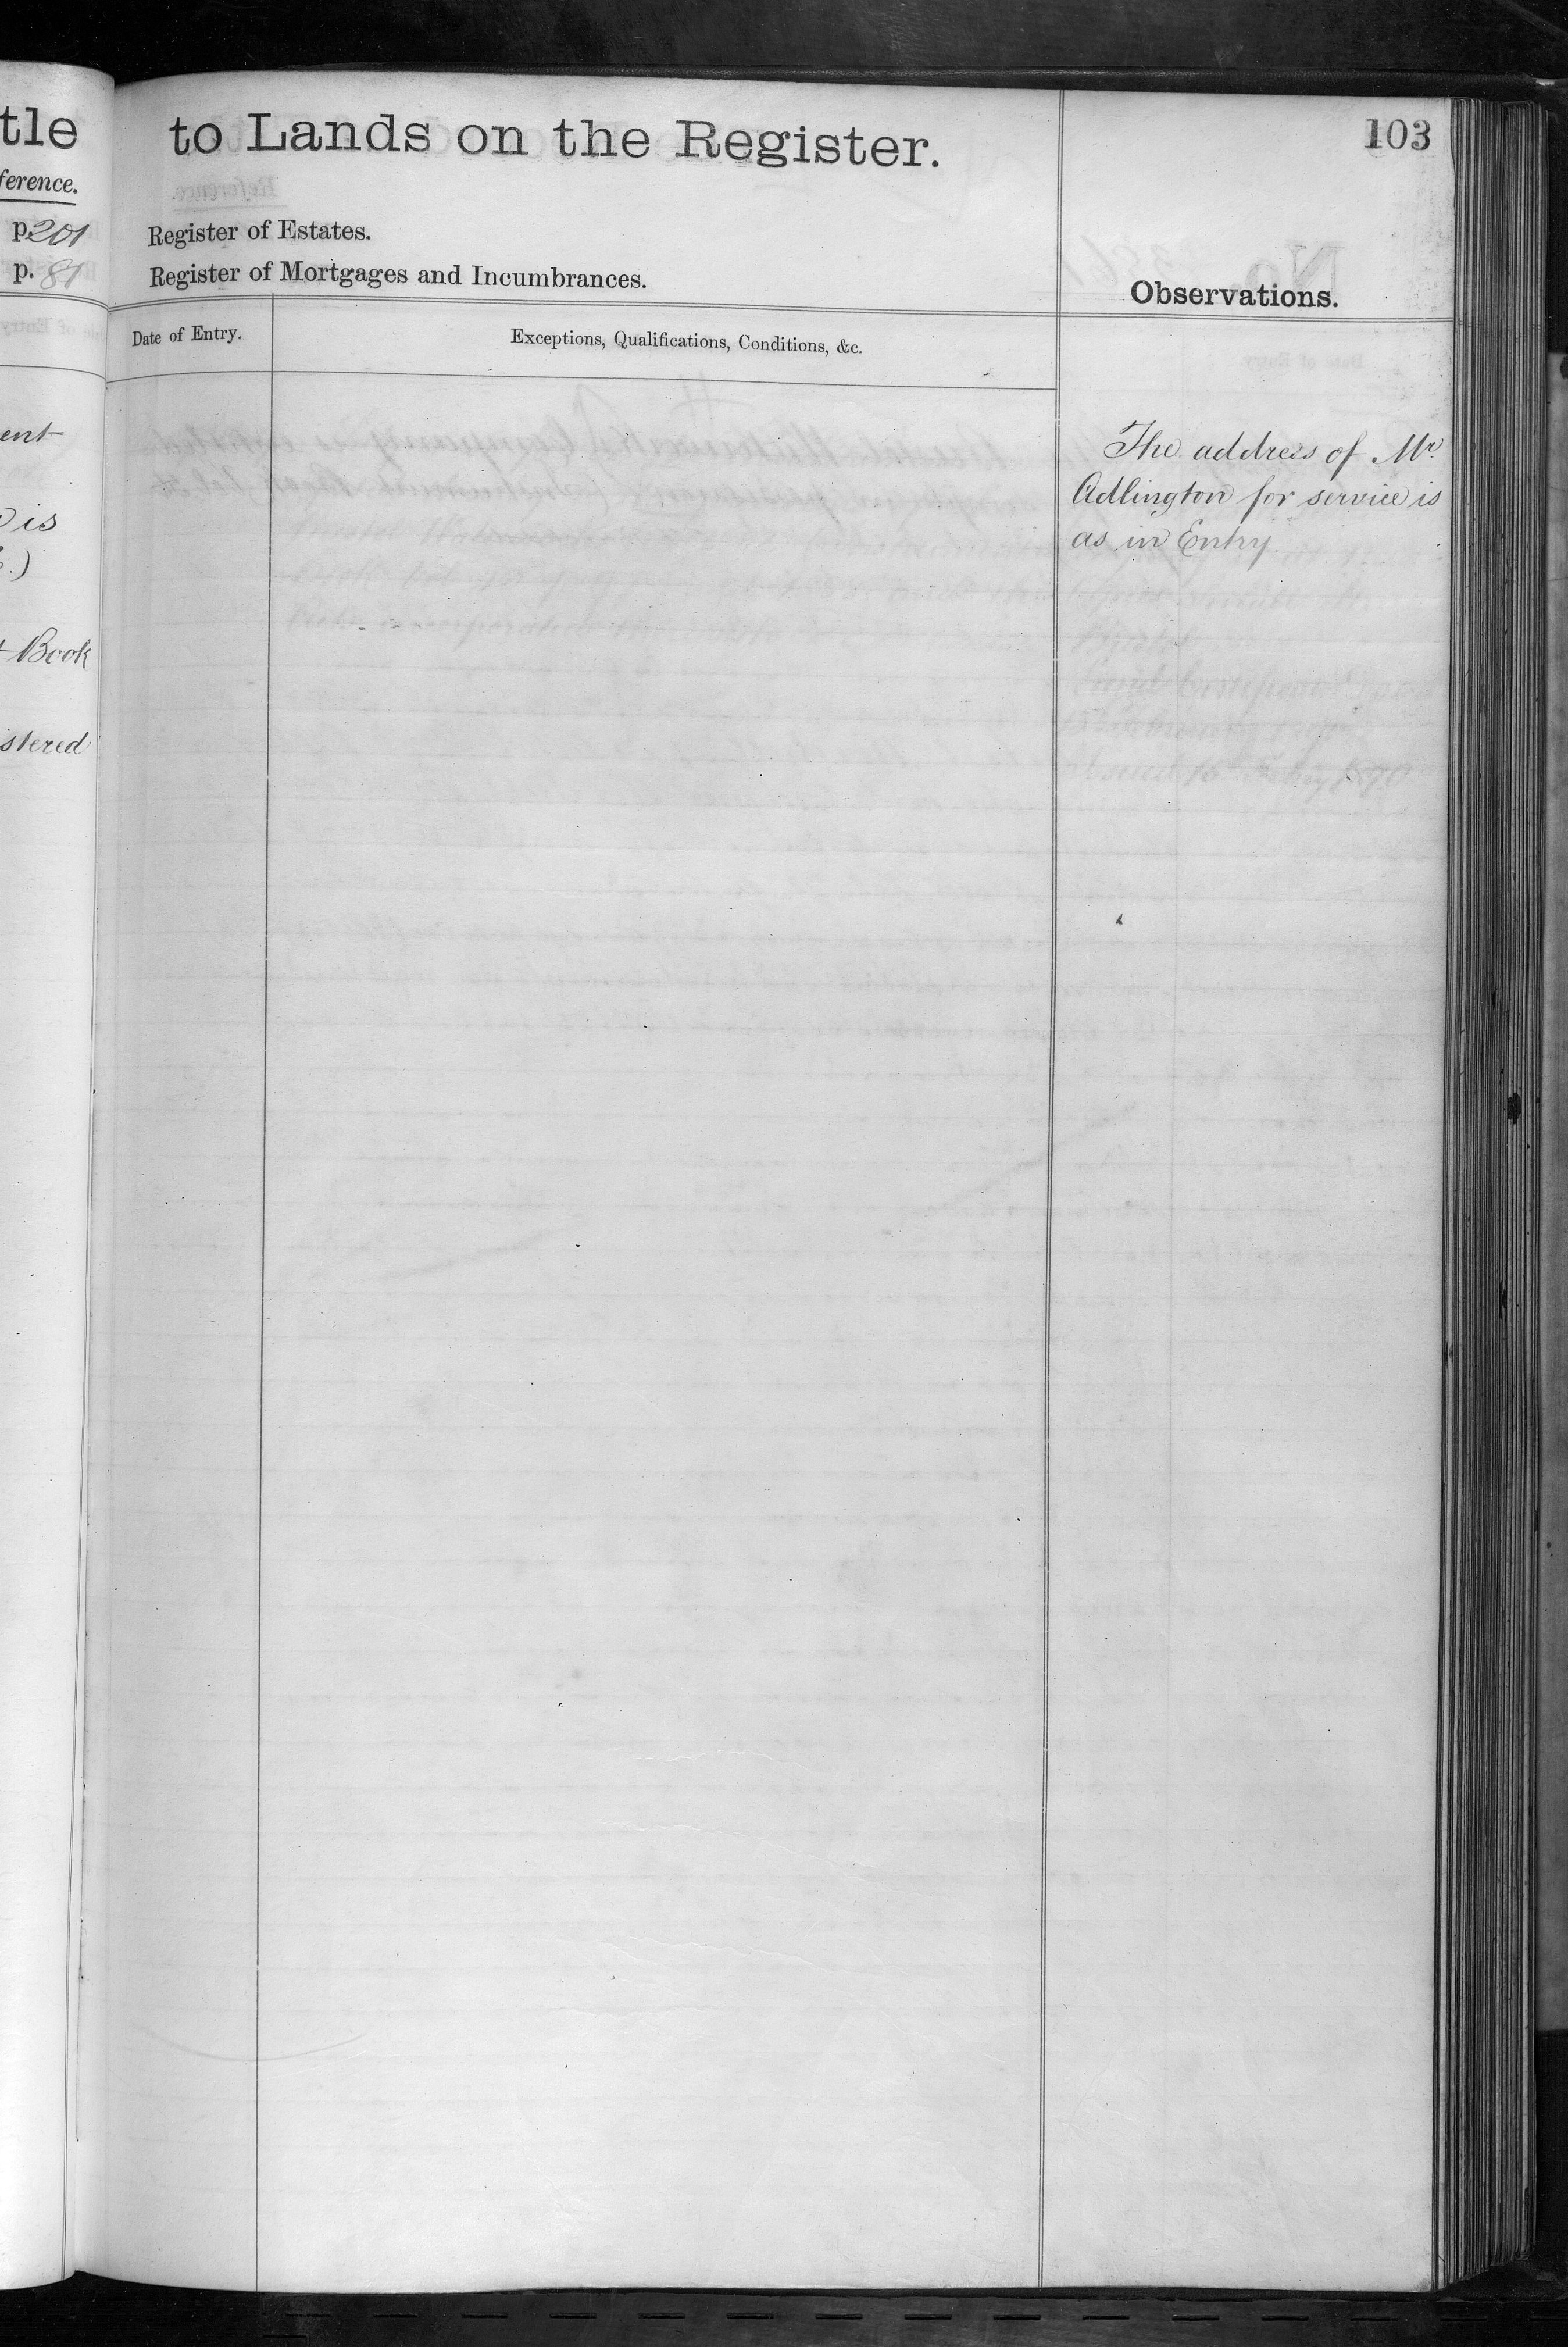 tle
ference.
p. 201
p. 81
ent
is
Book
stered
to Lands on the Register.
103
Register of Estates.
Register of Mortgages and Incumbrances.
Observations.
Date of Entry.
Exceptions, Qualifications, Conditions, &c.
The address of Mr.
Adlington for service is
as in Entry